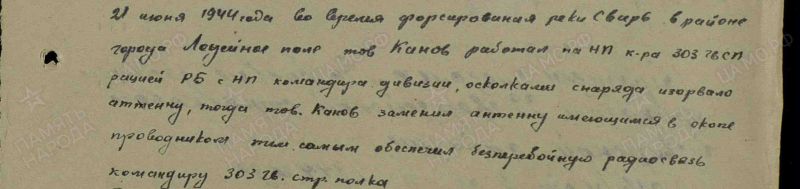 21 июня 1944 года во время форсирования реки Свирь в районе
города Лодейное поле тов Канов работал на НП к-ра 303 гв СП
рацией РБ с НП командира дивизии, осколками снаряда изорвало
антенну, тогда тов. Канов заменил антенну имеющимся в окопе
проводником тем самым обеспечил безперебойную радиосвязь
командиру 303 гв. стр. полка